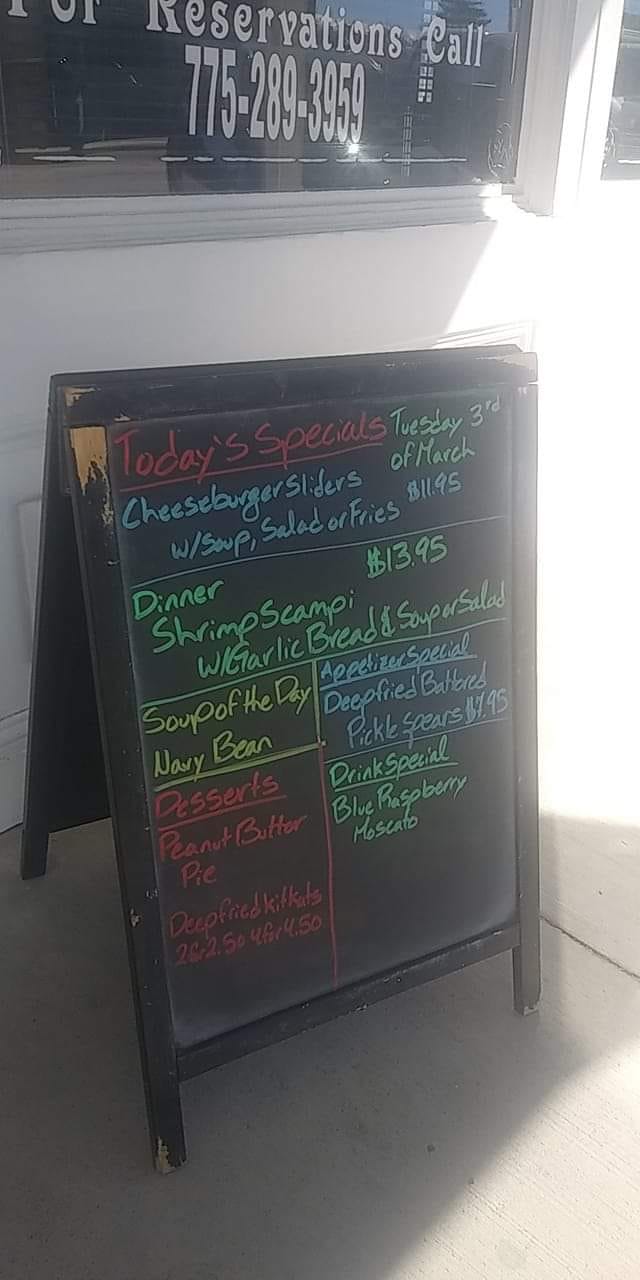 For Reservations Call
775-289-3959
Today's Specials
Tuesday 3rd
of March
Cheeseburger Sliders
w/Soup, Salad or Fries $11.95
Dinner $13.95
Shrimp Scampi
w/Garlic Bread & Soup or Salad
Soup of the Day
Navy Bean
Appetizer Special
Deepfried Battered
Pickle Spears $7.95
Desserts
Peanut Butter
Pie
Deepfried kitkats
2 for 2.50 4 for 4.50
Drink Special
Blue Raspberry
Moscato